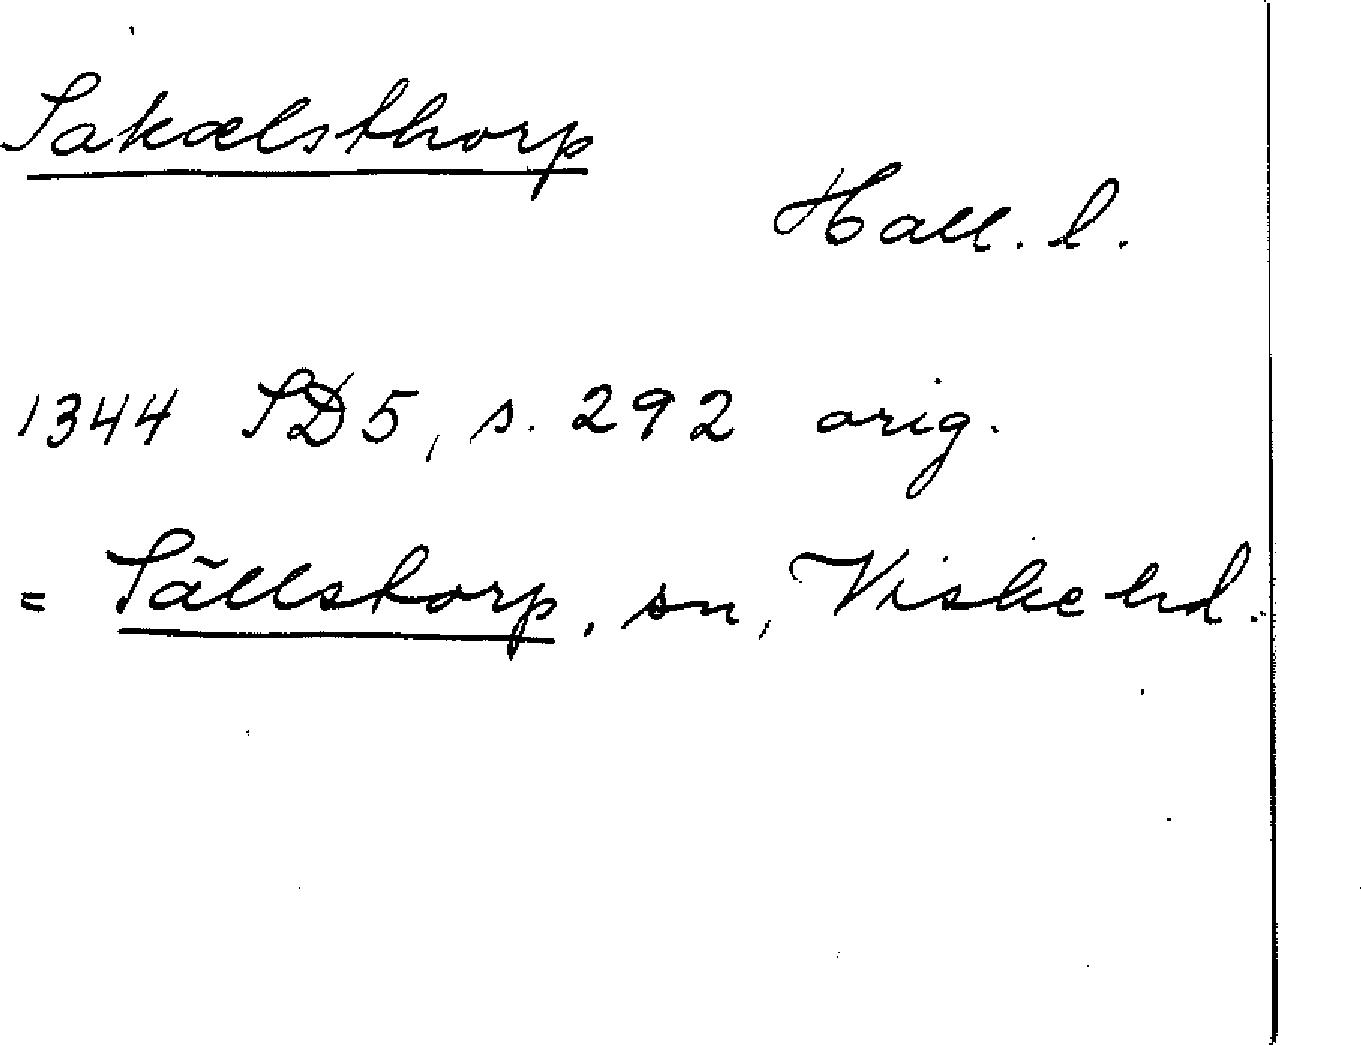 Sakælsthorp
Hall. l.
1344 SD5, s. 292 orig.
= Sällstorp, sn, Viske hd.